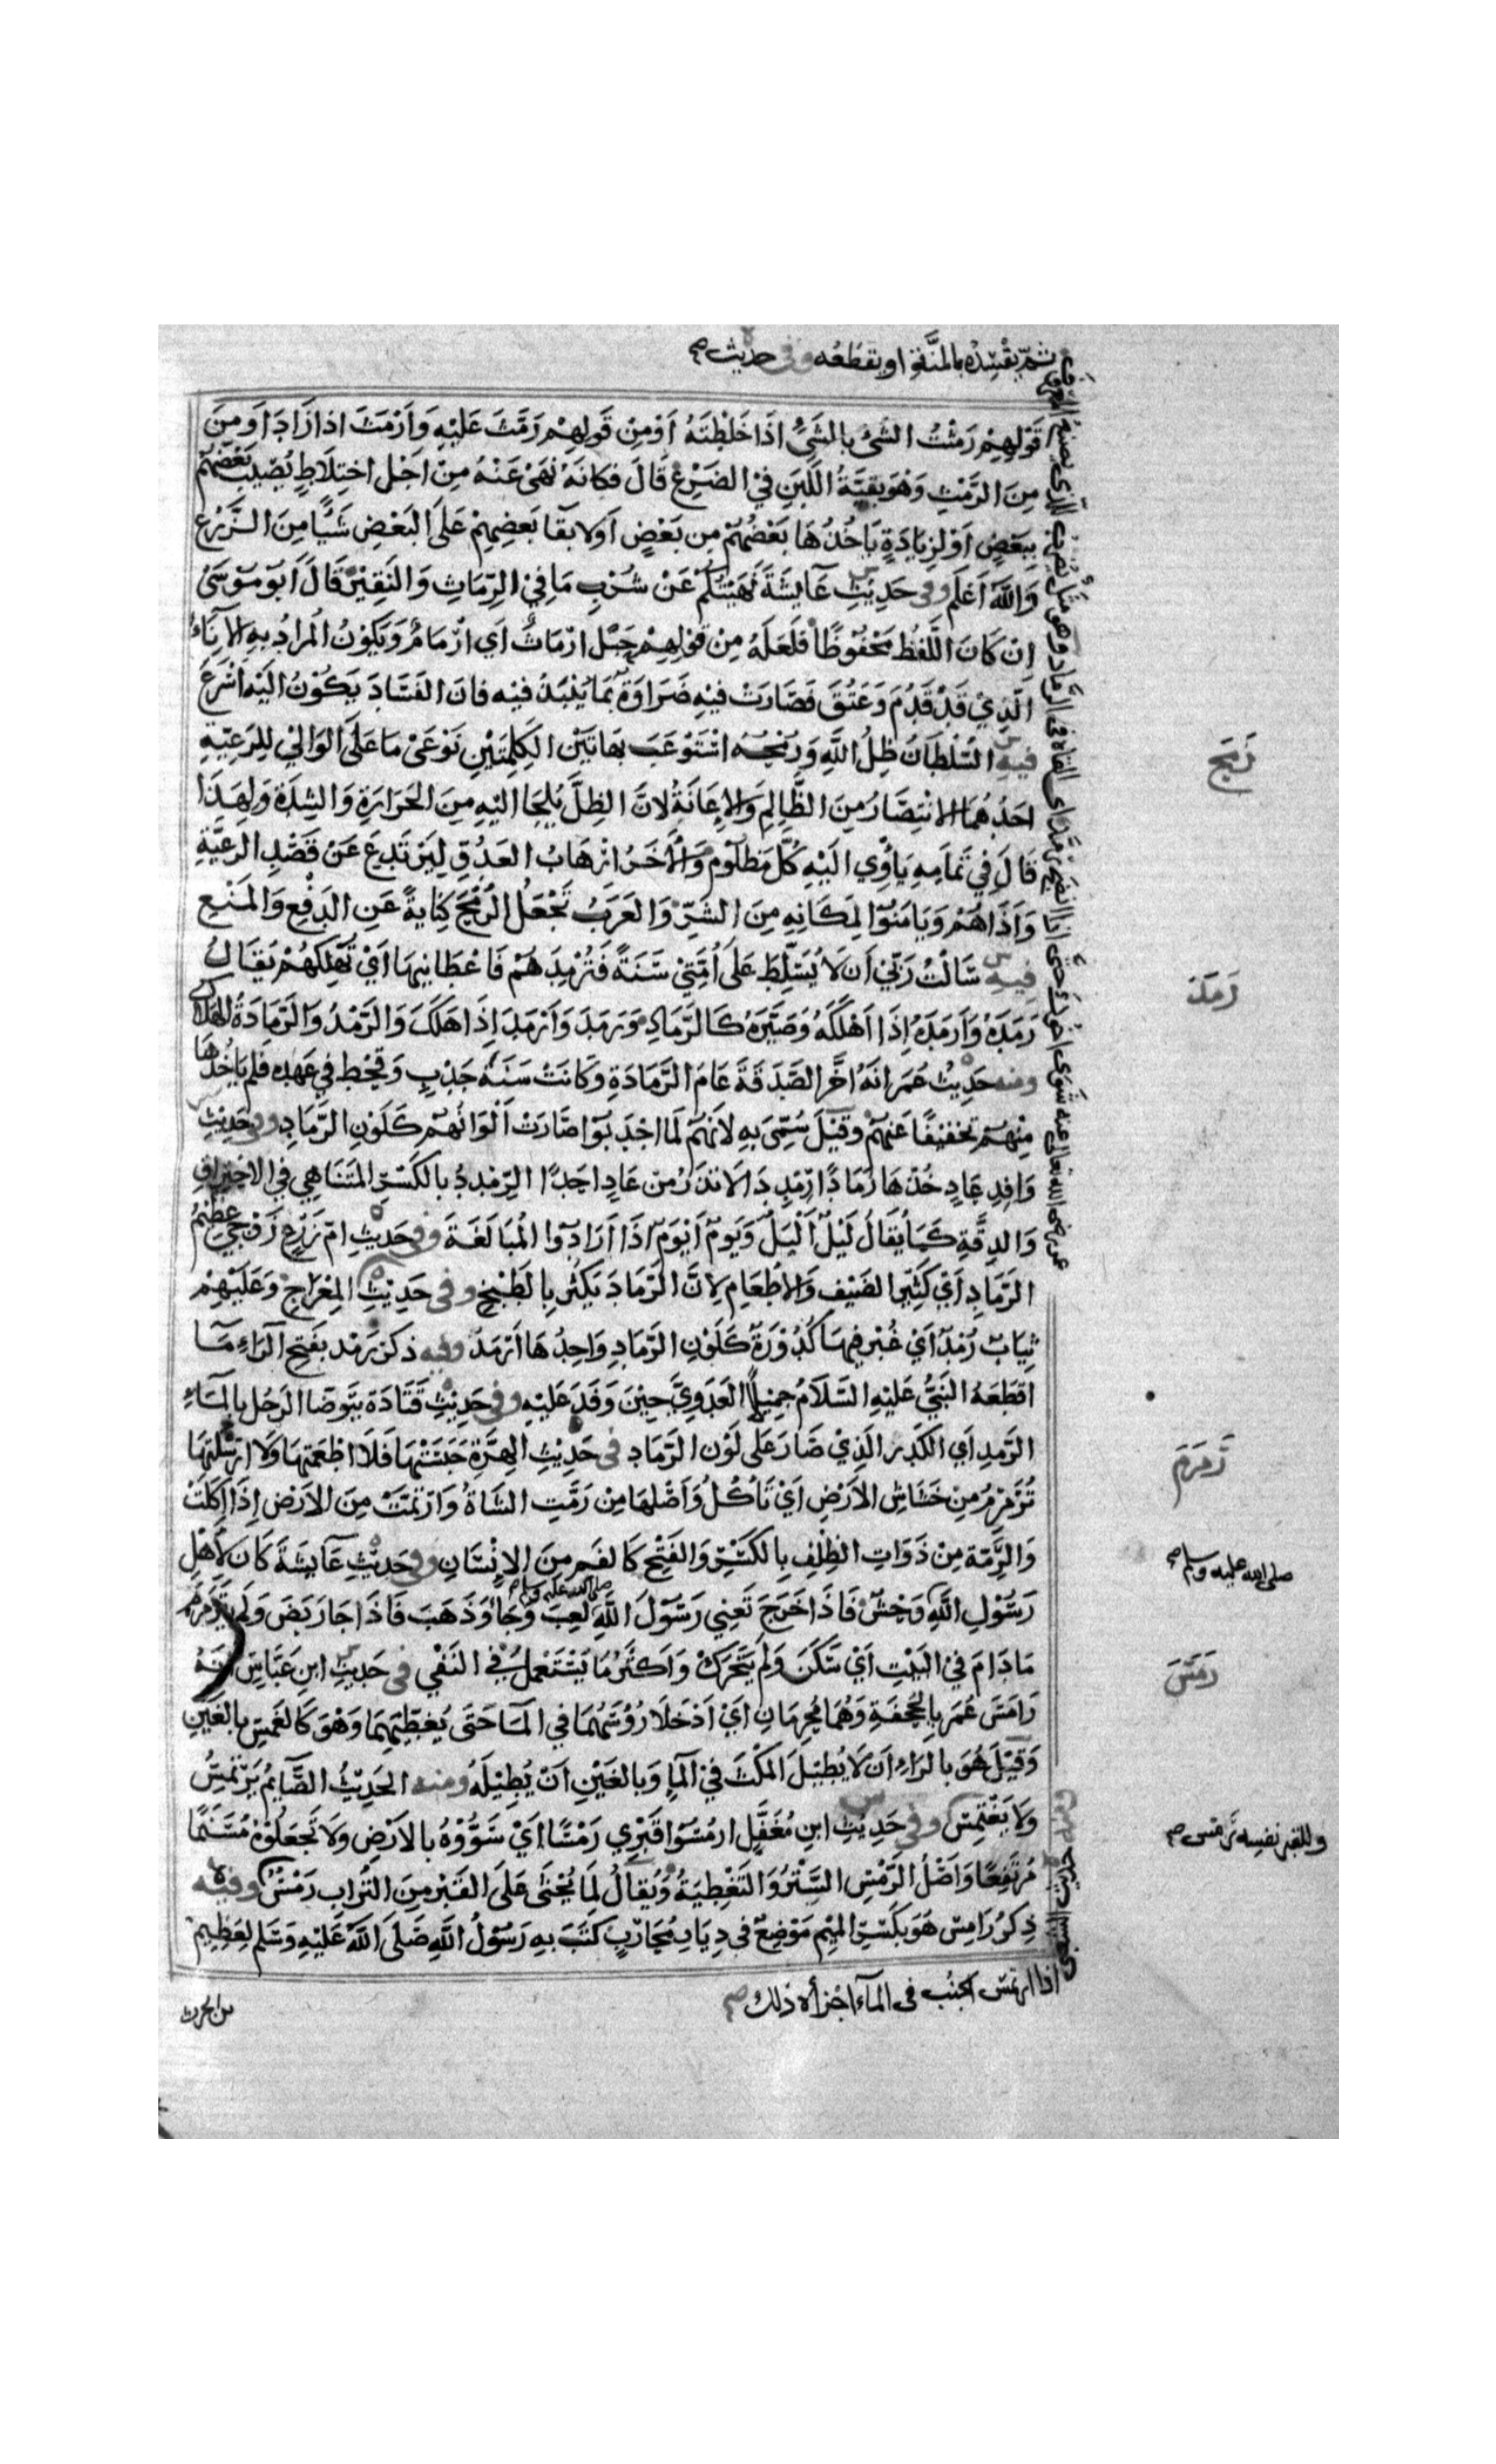 ثم يفسده بالمنة او يقطعه وفى حديث صح
قَوْلِهِمْ رَمَثْتُ الشَّىْءَ بِالشَّىْءِ اذَا خَلَطْتَهُ أَوْ مِنْ قَولِهِمْ رَمَّثَ عَلَيْهِ وَأَرْمَثَ اذا زَادَ أَو مِنَ
مِنَ الرَّمَثِ وَهُوَ بَقِيَّةُ اللَّبَنِ فِي الضَّرْعِ قَالَ فَكَانَهُ نَهَى عَنْهُ مِنْ اَجْلِ اخْتِلَاطِ نَصِيبِ بَعْضِهِمْ
بِبَعْضٍ أَوْ لِزِيَادَةٍ يَاخُذُهَا بَعْضُهُمْ مِن بَعْضٍ أَو لابقَا بَعْضِهِمْ عَلَى الْبَعْضِ شَيْئًا مِنَ الزَّرْعِ
وَاللهُ أَعْلَم وفى حَدِيثِ عَايِشَةَ نَهَيْتُكُمْ عَنْ شُرْبِ مَا فِي الرِّمَاثِ وَالنَّقِيْرِ قَالَ أَبُو مُوسَىْ
اِنْ كَانَ اللَّفْظُ مَحْفُوظًا فَلَعَلَّهُ مِنْ قَوْلِهِمْ حَبْلٌ ارْمَاثٌ اَي ارْمَامٌ وَيَكُونُ المُرَادُ بِهِ الانَاءُ
الَّذِيْ قَدْ قَدُمَ وَعَتُقَ فَصَارَتْ فِيْهِ ضَرَاوَةٌ بِمَا يُنْبَذُ فِيْهِ فَانَّ الْفَسَادَ يَكُوْنُ الَيْهِ اَسْرَعَ
فِيهِ السُّلْطَانُ ظِلُّ اللَّهِ وَرُمْحُهُ اسْتَوْعَبَ بِهَاتَيْنِ الكَلِمَتَيْنِ نَوْعَىْ مَا عَلَى الْوَالِيْ لِلرَّعِيَّةِ
احَدُهُمَا الانْتِصَارُ مِنَ الظَّالِمِ وَالإِعَانَةُ لانَّ الظِّلَّ يُلْجَا الَيْهِ مِنَ الحَرَارَةِ وَالشِّدَّةِ وَلِهَذَا
قَالَ فِي تَمَامِهِ يَاْوِي الَيْهِ كُلُّ مَظْلُومٍ وَالأَخَرُ ارْهَابُ العَدُوِّ لِيَرْتَدِعَ عَنْ قَصْدِ الرَّعِيَّةِ
وَاَذَاهُمْ وَيَامَنُوْا لِمَكَانِهِ مِنَ الشَّرِّ وَالعَرَبُ تَجْعَلُ الرُّمْحَ كِنَايَةً عَنِ الدَّفْعِ وَالمَنْعِ
فِيهِ سَالْتُ رَبِّيْ اَن لَا يُسَلِّطَ عَلَى اُمَّتِيْ سَنَةً فَتُرْمِدَهُمْ فَاَعْطَانِيهَا اَيْ تُهْلِكُهُمْ يُقَالُ
رَمَدَهُ وَاَرْمَدَهُ اِذَا اَهْلَكَهُ وَصَيَّرَهُ كَالرَّمَادِ وَرَمَدَ وَاَرْمَدَ اِذَا هَلَكَ وَالرَّمْدُ وَالرَّمَادَةُ الْهَلَاكُ
ومنه حَدِيْثُ عُمَرَ انَّهُ اخَّرَ الصَّدَقَةَ عَامَ الرَّمَادَةِ وَكَانَتْ سَنَةَ جَدْبٍ وَقَحْطٍ فِي عَهْدِهِ فَلَمْ يَاخُذْهَا
مِنْهُمْ تَخْفِيْفًا عَنْهُمْ وَقِيْلَ سُمِّىَ بِهِ لاَنَّهُمْ لَمَّا اجْدَبُوا صَارَتْ اَلْوَانُهُمْ كَلَوْنِ الرَّمَادِ وفى حَدِيْثِ
وَافِدِ عَادٍ خُذْهَا رَمَادًا رِمْدِدَا لَا تَذَرُ مِن عَادٍ اَحَدًا الرِّمْدِدُ بِالكَسْرِ المُتَنَاهِي فِي الاحْتِرَاقِ
وَالدِّقَّةِ كَمَا يُقَالُ لَيْلٌ اَلْيَلُ وَيَومٌ اَيْوَمُ اذَا اَرَادُوا الْمُبَالَغَةَ وفى حَدِيْثِ امِّ زَرْعٍ زَوْجِي عَظِيْمُ
الرَّمَادِ اَيْ كَثِيْرُ الضَّيْفِ وَالاطْعَامِ لاِنَّ الرَّمَادَ يَكْثُرُ بِالطَّبْخِ وفى حَدِيْثِ المِعْرَاجِ وَعَلَيْهِمْ
ثِيَابٌ رُمْدٌ اَيْ غُبْر فِيهَا كُدُوْرَةٌ كَلَوْنِ الرَّمَادِ وَاحِدُهَا اَرْمَدُ وفيه ذكر رَمْد بِفَتْحِ الرَّاءِ مَا
اقْطَعَهُ النَّبِيُّ عَلَيْهِ السَّلَامُ جَمِيْلًا العَدَوِيَّ حِيْنَ وَفَدَ عَلَيْهِ وفى حَدِيْثِ قَتَادَةَ يَتَوَضَّا الرَّجُلُ بِالمَاءِ
الرَّمِدِ اَي الكَدِر الَّذِيْ صَارَ عَلَى لَوْنِ الرَّمَادِ فى حَدِيْثِ الهِرَّةِ حَبَسَتْهَا فَلَا اطْعَمَتْهَا وَلَا ارْسَلَتْهَا
تُرَمْرِمُ مِن خَشَاشِ الاَرْضِ اَيْ تَاكُلُ وَاَصْلُهَا مِنْ رَمَّتِ الشَّاةُ وَارْتَمَّتْ مِنَ الاَرْضِ اِذَا اَكَلَتْ
وَالرِّمَّة مِنْ ذَوَاتِ الظِّلْفِ بِالكَسْرِ وَالفَتْحِ كَالفَمِ مِنَ الاِنْسَانِ وفى حَدِيْثِ عَايِشَةَ كَانَ لِاَهْلِ
رَسُوْلِ اللَّهِ وَحْشٌ فَاذَا خَرَجَ تَعْنِي رَسُوْلَ اللَّهِ صلى الله عليه وسلم لَعِبَ وَجَاءَ وَذَهَبَ فَاذَا جَا رَبَضَ وَلَم يَتَرَمْرَمْ
مَا دَامَ فِي البَيْتِ اَيْ سَكَنَ وَلَمْ يَتَحَرَّكْ وَاَكْثَرُ مَا يُسْتَعْمَلُ فِي النَّفْي فى حَدِيْثِ ابْنِ عَبَّاسٍ اَنَّهُ
رَامَسَ عُمَر بِالجُحْفَةِ وَهُمَا مُحْرِمَانِ اَيْ اَدْخَلَا رُؤُسَهُمَا فِي المَا حَتَى يُغَطِّيَهُمَا وَهُوَ كَالغَمْسِ بِالْغَيْنِ
وَقِيْلَ هُوَ بِالرَاءِ اَن لَا يُطِيْلَ المَكْثَ فِيْ المَاءِ وَبِالغَيْنِ اَنْ يُطِيْلَهُ ومنه الحَدِيْثُ الصَّايِمُ يَرْتَمِسُ
وَلَا يَغْتَمِسُ وفى حَدِيْثِ ابْنِ مُغَفَّلٍ ارْمُسُوْا قَبْرِي رَمْسًا اَيْ سَوُّوْهُ بِالاَرْضِ وَلَا تَجْعَلُوْهُ مُسَنَّمًا
مُرْتَفِعًا وَاَصْلُ الرَّمْسِ السَّتْرُ وَالتَغْطِيَةُ وَيُقَالُ لِمَا يُحْثَى عَلَى القَبْرِ مِنَ التُّرَابِ رَمْسٌ وفيه
ذِكْرُ رَامِس هُوَ بِكَسْرِ المِيْمِ مَوْضِعٌ فى دِيَارِ مُحَارِبٍ كَتَبَ بِهِ رَسُوْلُ اللَّهِ صَلَى اللهُ عَلَيْهِ وَسَلَم لِعُظَيْمِ
اذا ارتمس الجنب فى المآء اجزأه ذلك صح
بن الحرث
رَمَحَ
رَمَدَ
رَمْرَمَ
صلى الله عليه وسلم صح
رَمَسَ
وللقبر نفسه رَمْس صح
عمر رضى الله تعالى عنه شوى اخوك حتى اذا انضج رمد اى القاه فى الرماد وهو مثل يضرب للذى يصنع المعروف